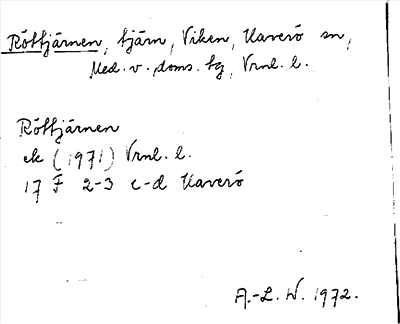 Röttjärnen, tjärn, Viken, Haverö sn,
Med. v. doms. tg, Vrnl. l.
Röttjärnen
ek (1971) Vrnl. l.
17 F 2-3 c-d Haverö
A.-L. W. 1972.